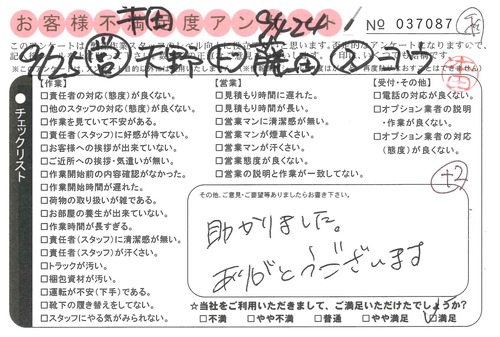 お客様不満足度アンケート
No 037087
チェックリスト
【作業】
□責任者の対応(態度)が良くない。
□他のスタッフの対応(態度)が良くない。
□作業を見ていて不安がある。
□責任者(スタッフ)に好感が持てない。
□お客様への挨拶が出来ていない。
□ご近所への挨拶・気遣いが無い。
□作業開始前の内容確認がなかった。
□作業開始時間が遅れた。
□荷物の取り扱いが雑である。
□お部屋の養生が出来ていない。
□作業時間が長すぎる。
□責任者(スタッフ)に清潔感が無い。
□責任者(スタッフ)が汗くさい。
□トラックが汚い。
□梱包資材が汚い。
□運転が不安(下手)である。
□靴下の履き替えをしてない。
□スタッフにやる気がみられない。
【営業】
□見積もり時間に遅れた。
□見積もり時間が長い。
□営業マンに清潔感が無い。
□営業マンが煙草くさい。
□営業マンが汗くさい。
□営業態度が良くない。
□営業の説明と作業が一致してない。
【受付・その他】
□電話の対応が良くない。
□オプション業者の説明
・作業が良くない。
□オプション業者の対応
(態度)が良くない。
その他、ご意見・ご要望等ありましたらお書き下さい。
助かりました。
ありがとうございます
☆当社をご利用いただきまして、ご満足いただけたでしょうか?
□不満 □やや不満 □普通 □やや満足 □満足